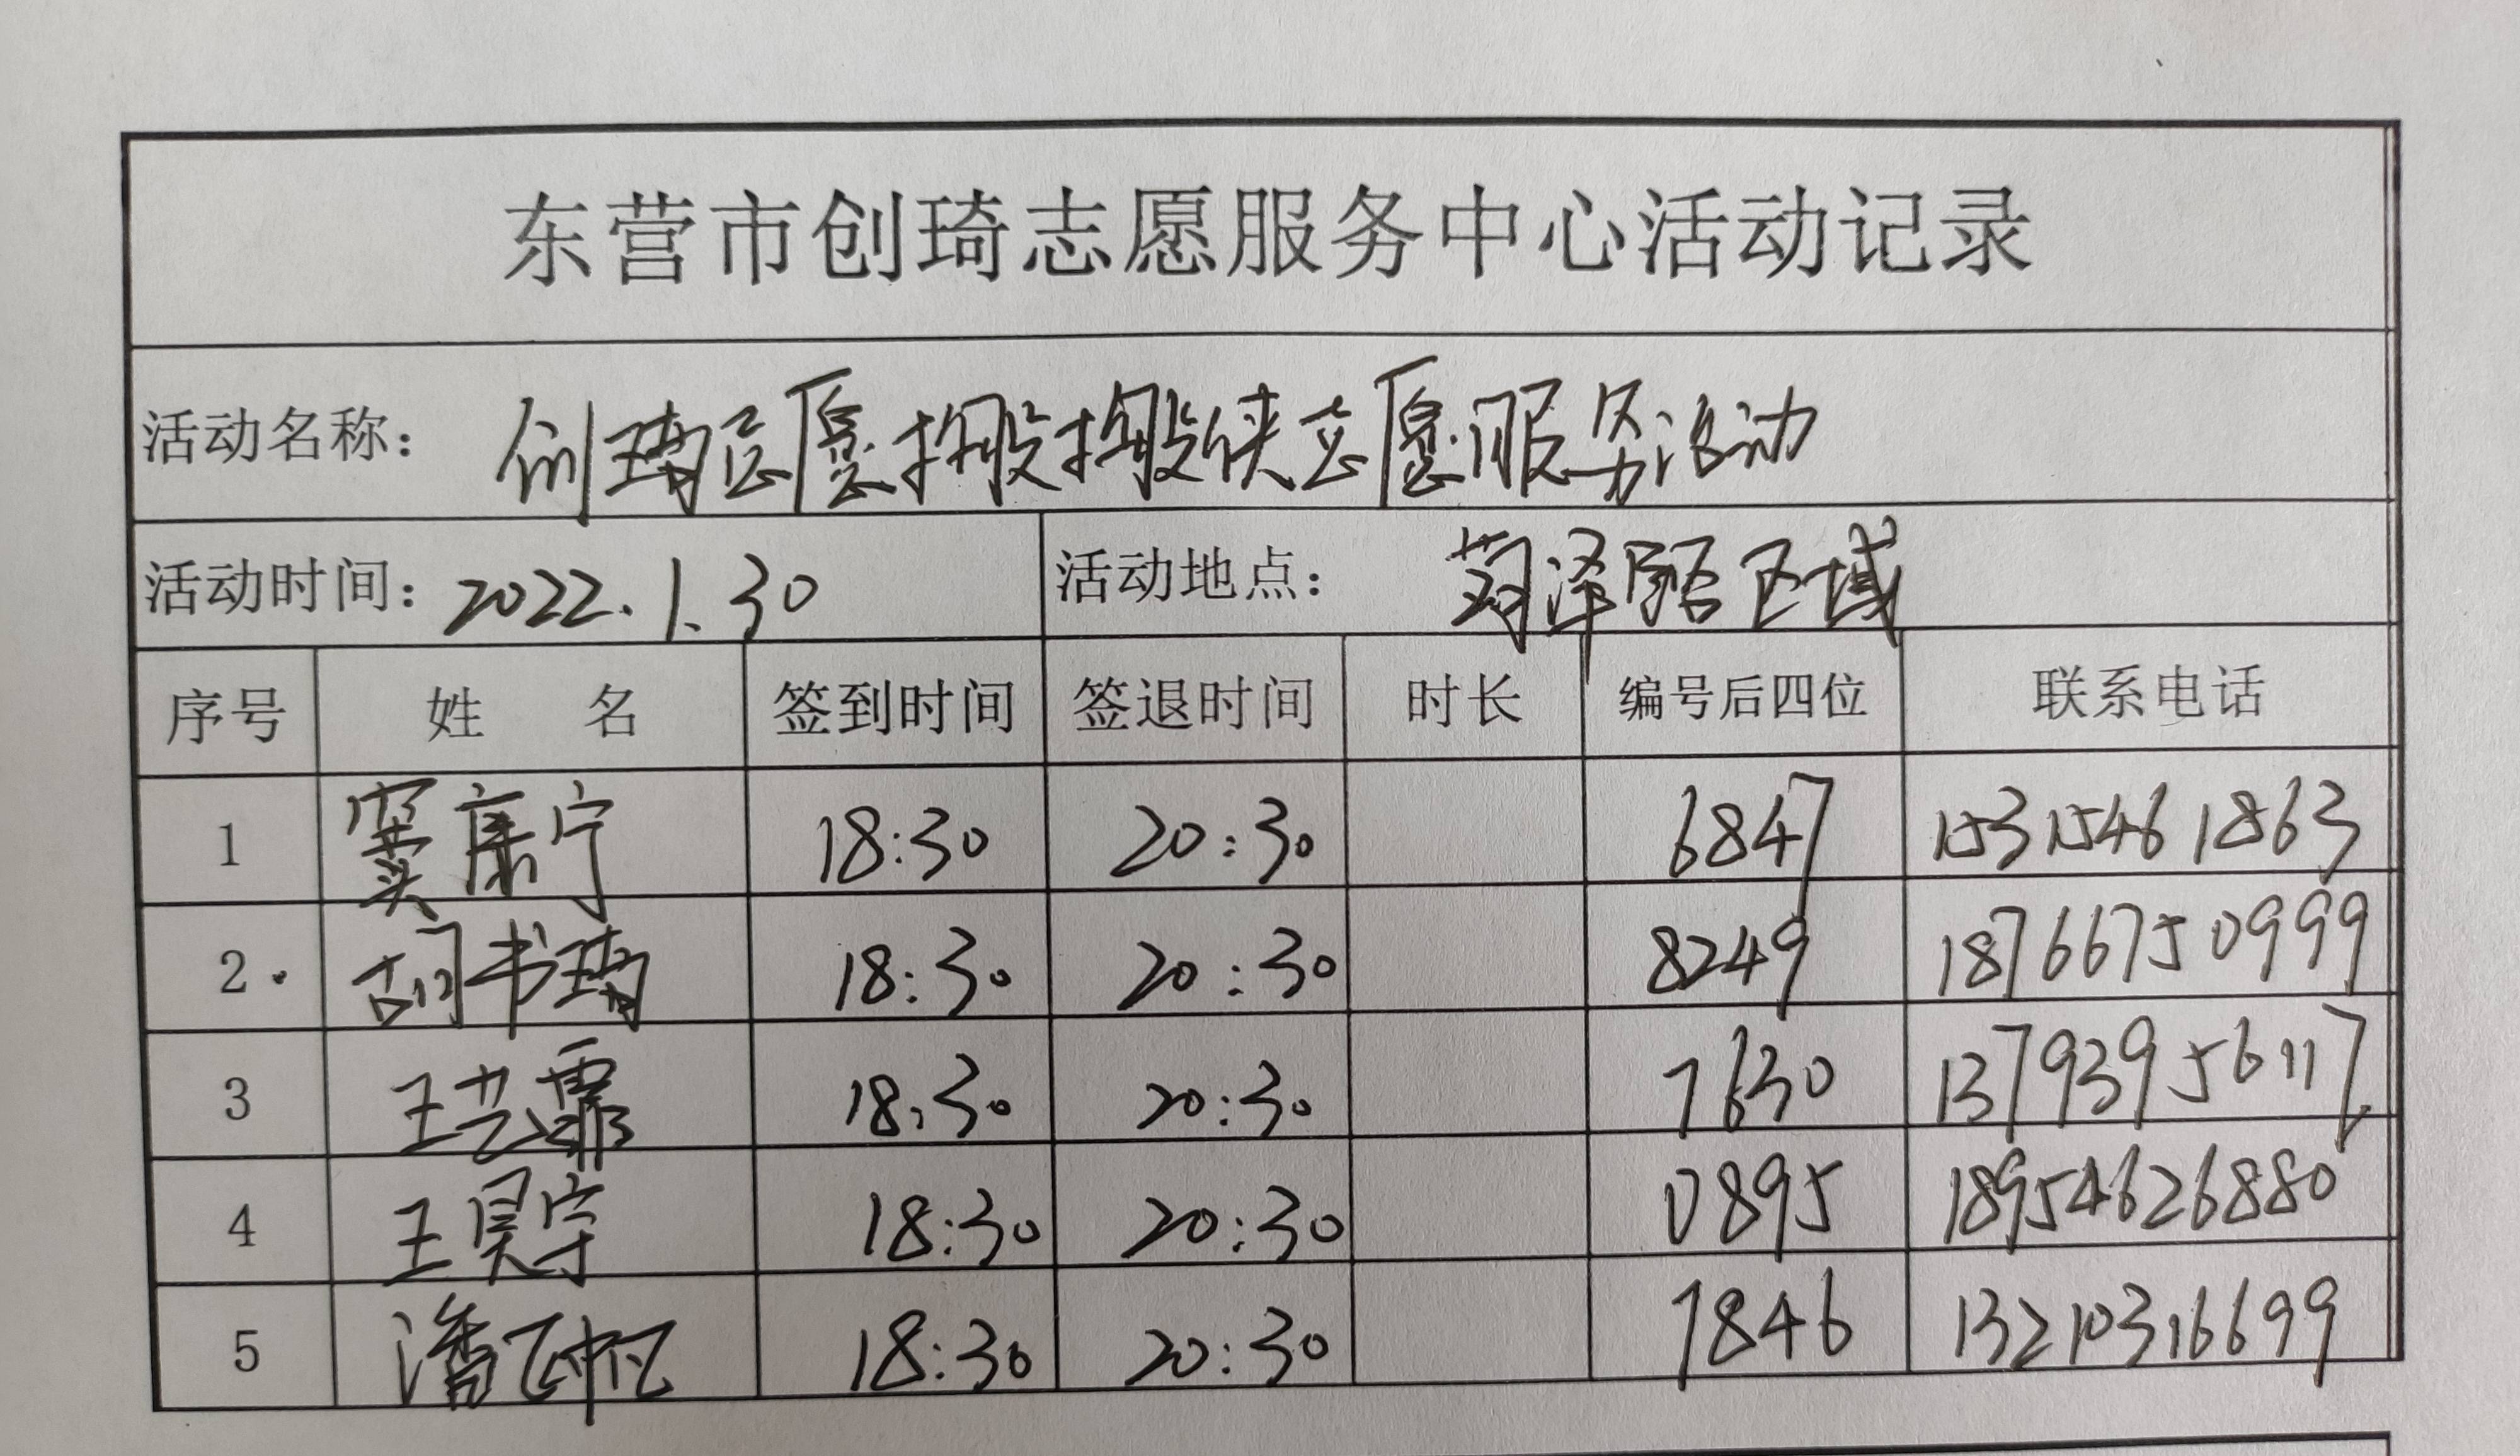 东营市创琦志愿服务中心活动记录
活动名称： 创琦志愿搬搬侠志愿服务活动
活动时间：2022.1.30 活动地点： 菏泽路区域
序号 姓 名 签到时间 签退时间 时长 编号后四位 联系电话
1 窦康宁 18:30 20:30 6847 15315461863
2 胡书琦 18:30 20:30 8249 18766750999
3 王艺霏 18:30 20:30 7630 13793956117
4 王昊宇 18:30 20:30 0895 18954626880
5 潘飞帆 18:30 20:30 7846 13210316699